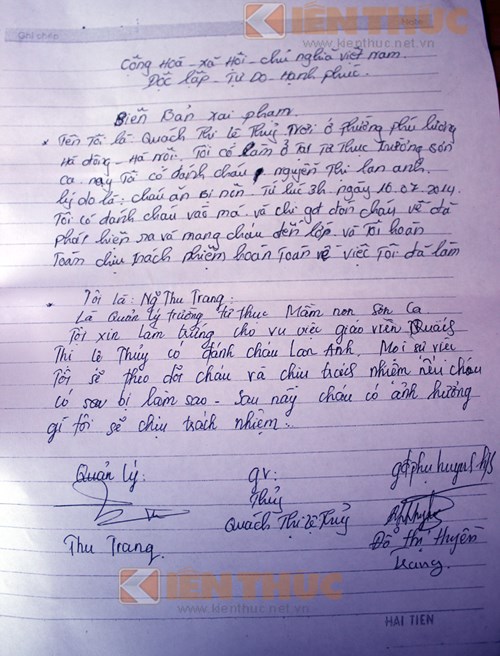 Ghi chép
KIẾN THỨC
www.kienthuc.net.vn
Cộng Hoà - xã Hội - chủ nghĩa việt nam
Độc lập - Tự Do - Hạnh phúc.
Biên Bản xai phạm
* Tên Tôi là Quách Thị lê Thuỷ Trời ở phường phú lương
Hà đông - Hà nội. Tôi có làm ở tại Tư Thục trường sơn
ca nay Tôi có đánh cháu nguyễn Thị lan anh.
lý do là: cháu ăn Bị nên Từ lúc 3h ngày 16.07.2014.
Tôi có đánh cháu vào má và chị gđ đón cháu về đã
phát hiện ra và mang cháu đến lớp và Tôi hoàn
Toàn chịu trách nhiệm hoàn toàn về việc Tôi đã làm
* Tôi là: Ng Thu Trang:
Là Quản lý trường tư thục Mầm non Sơn Ca
Tôi xin làm trứng cho vụ việc giáo viên Quách
Thị lê Thủy có đánh cháu Lan Anh. Mọi sự việc
Tôi sẽ theo dõi cháu và chịu trách nhiệm nếu cháu
có sau bị làm sao - Sau này cháu có ảnh hưởng
gì tôi sẽ chịu trách nhiệm.
Quản lý: gv: gđ phụ huynh h/s
Thủy
Thu Trang. Quách Thị Lệ Thuỷ Đỗ thị Huyền
Trang.
KIẾN THỨC
www.kienthuc.net.vn
HẢI TIẾN